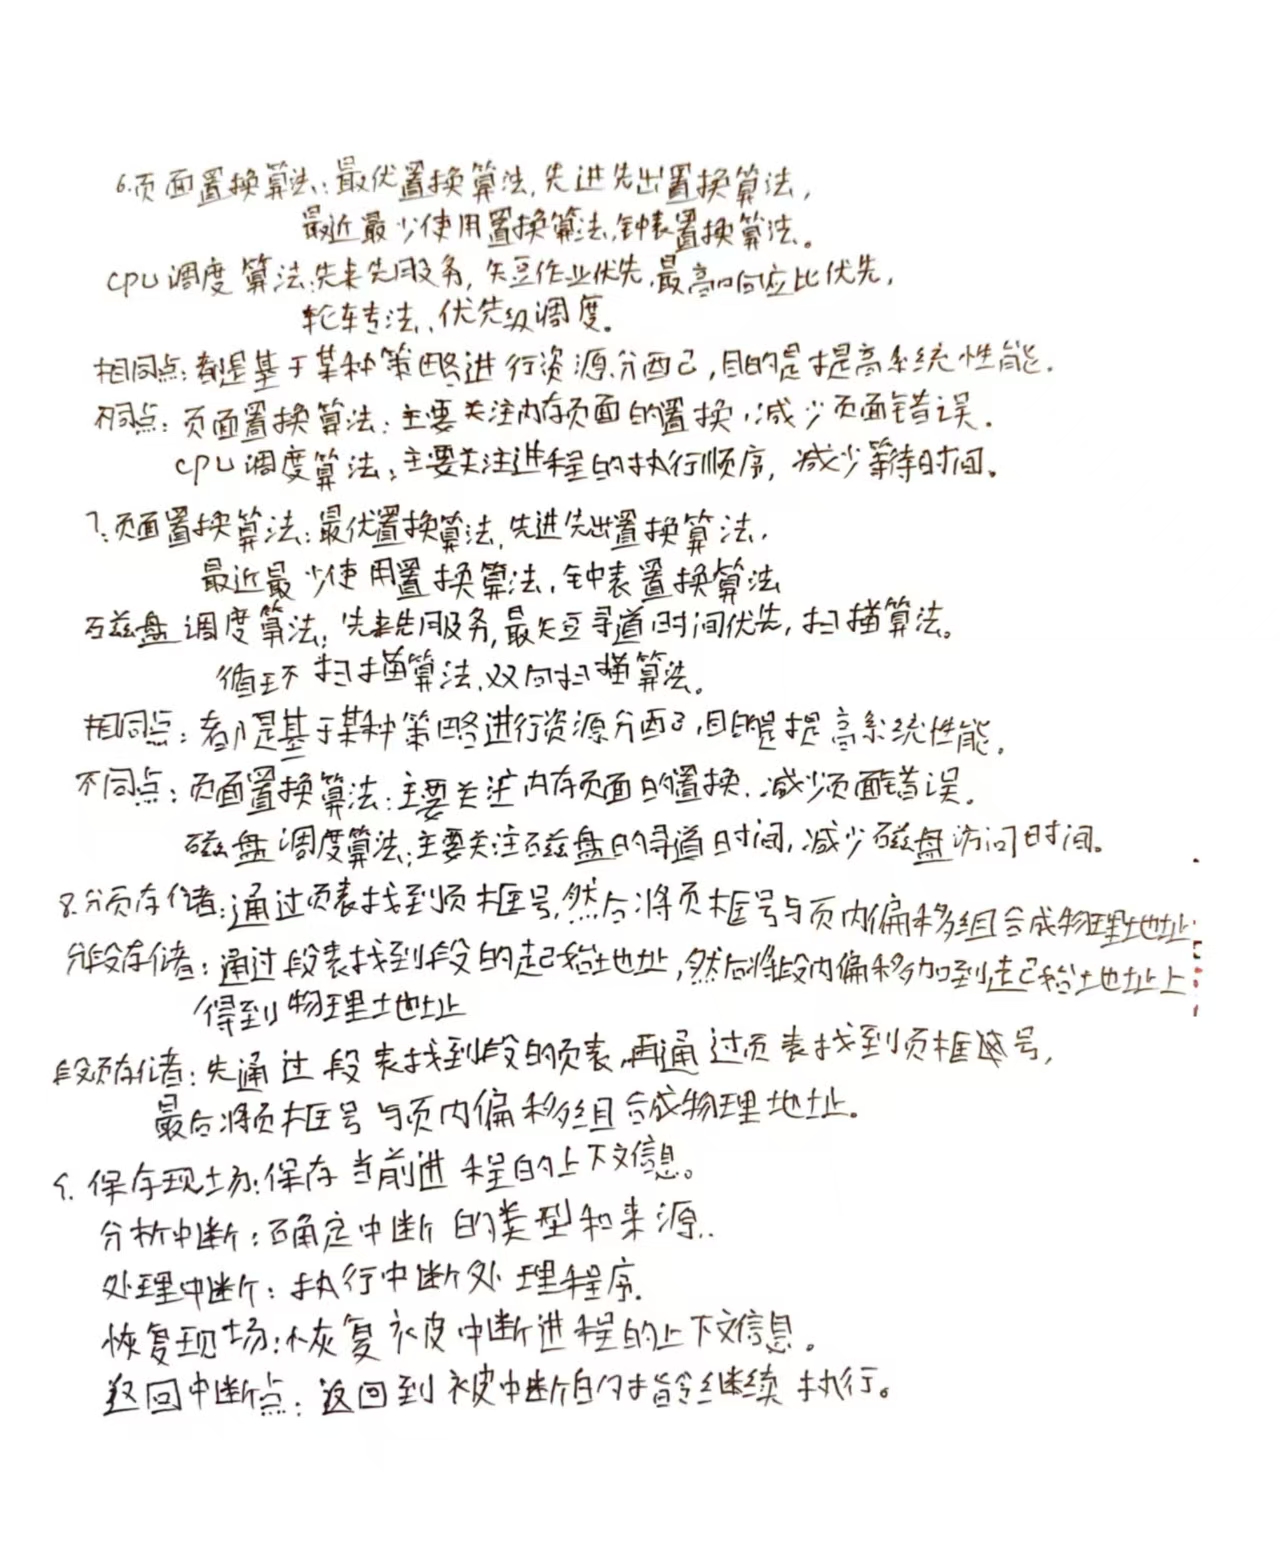 6.页面置换算法:最优置换算法,先进先出置换算法,
最近最少使用置换算法,钟表置换算法。
CPU调度算法:先来先服务,短作业优先,最高响应比优先,
轮转法、优先级调度。
相同点:都是基于某种策略进行资源分配,目的是提高系统性能.
不同点:页面置换算法:主要关注内存页面的置换,减少页面错误.
CPU调度算法:主要关注进程的执行顺序,减少等待时间。
7.页面置换算法:最优置换算法,先进先出置换算法,
最近最少使用置换算法,钟表置换算法
磁盘调度算法:先来先服务,最短寻道时间优先,扫描算法。
循环扫描算法,双向扫描算法。
相同点:都是基于某种策略进行资源分配,目的是提高系统性能.
不同点:页面置换算法:主要关注内存页面的置换.减少页面错误.
磁盘调度算法:主要关注磁盘的寻道时间,减少磁盘访问时间。
8.分页存储:通过页表找到页框号,然后将页框号与页内偏移组合成物理地址
分段存储:通过段表找到段的起始地址,然后将段内偏移加到起始地址上
得到物理地址
段页存储:先通过段表找到段的页表,再通过页表找到页框号,
最后将页框号与页内偏移组合成物理地址.
9.保存现场:保存当前进程的上下文信息。
分析中断:确定中断的类型和来源.
处理中断:执行中断处理程序.
恢复现场:恢复被中断进程的上下文信息。
返回中断点:返回到被中断的指令继续执行。